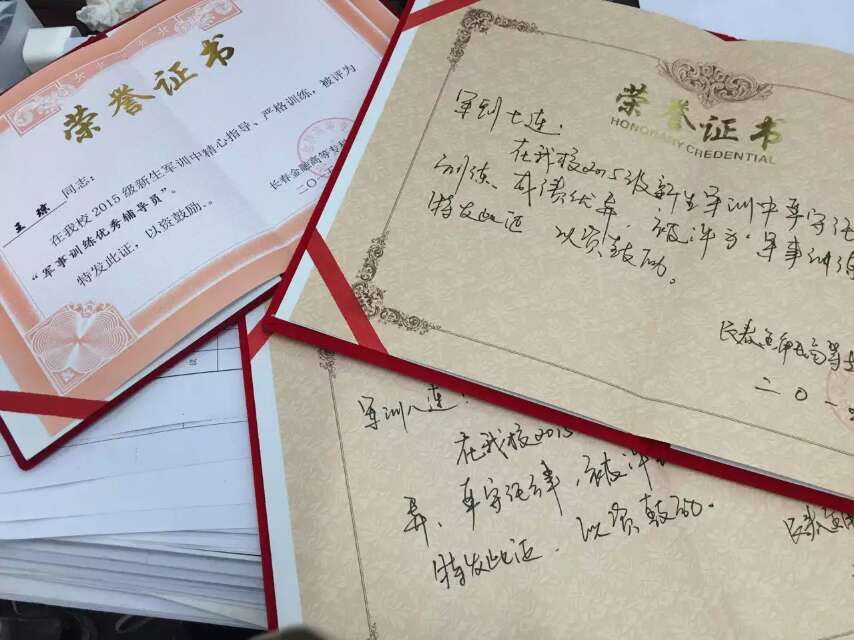 荣誉证书
王琼 同志:
在我校2015级新生军训中精心指导、严格训练,被评为
“军事训练优秀辅导员”。
特发此证,以资鼓励。
长春金融高等专科
二〇一五
荣誉证书
HONORARY CREDENTIAL
军训七连:
在我校2015级新生军训中
训练、成绩优异,被评为“军事训练
特发此证 以资鼓励。
长春金融高等
二〇一
军训八连:
在我校2015
异、 被评
特发此证、以资鼓励.
长春金